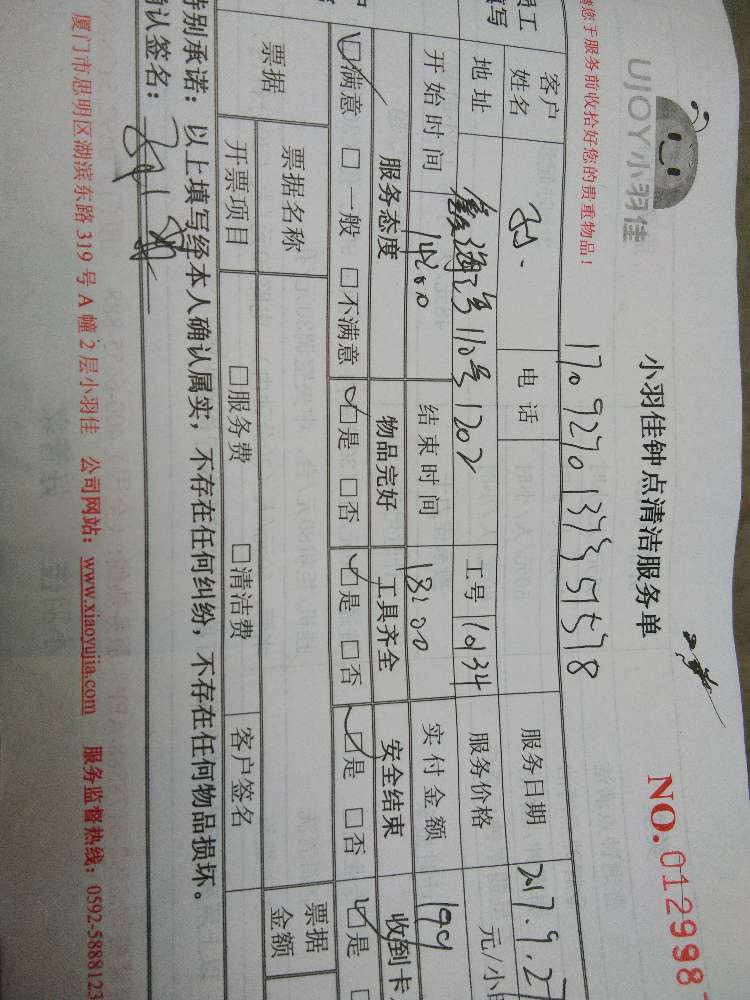 UJOY小羽佳
小羽佳钟点清洁服务单
NO.012998
您于服务前收拾好您的贵重物品！
1709270137351578
员工
填写
客户
姓名
孙
电话
服务日期
2017.9.27
地址
鑫海湾110号1202
工号
10134
服务价格
元/小
开始时间
14:00
结束时间
18:00
实付金额
199
服务态度
物品完好
工具齐全
安全结束
收到卡
☑满意 □一般 □不满意
☑是 □否
☑是 □否
☑是 □否
☑是
票据
票据名称
票据
金额
开票项目
□服务费 □清洁费
客户签名
特别承诺：以上填写经本人确认属实，不存在任何纠纷，不存在任何物品损坏。
确认签名：
厦门市思明区湖滨东路 319 号 A 幢 2 层小羽佳 公司网站：www.xiaoyujia.com 服务监督热线：0592-5888123